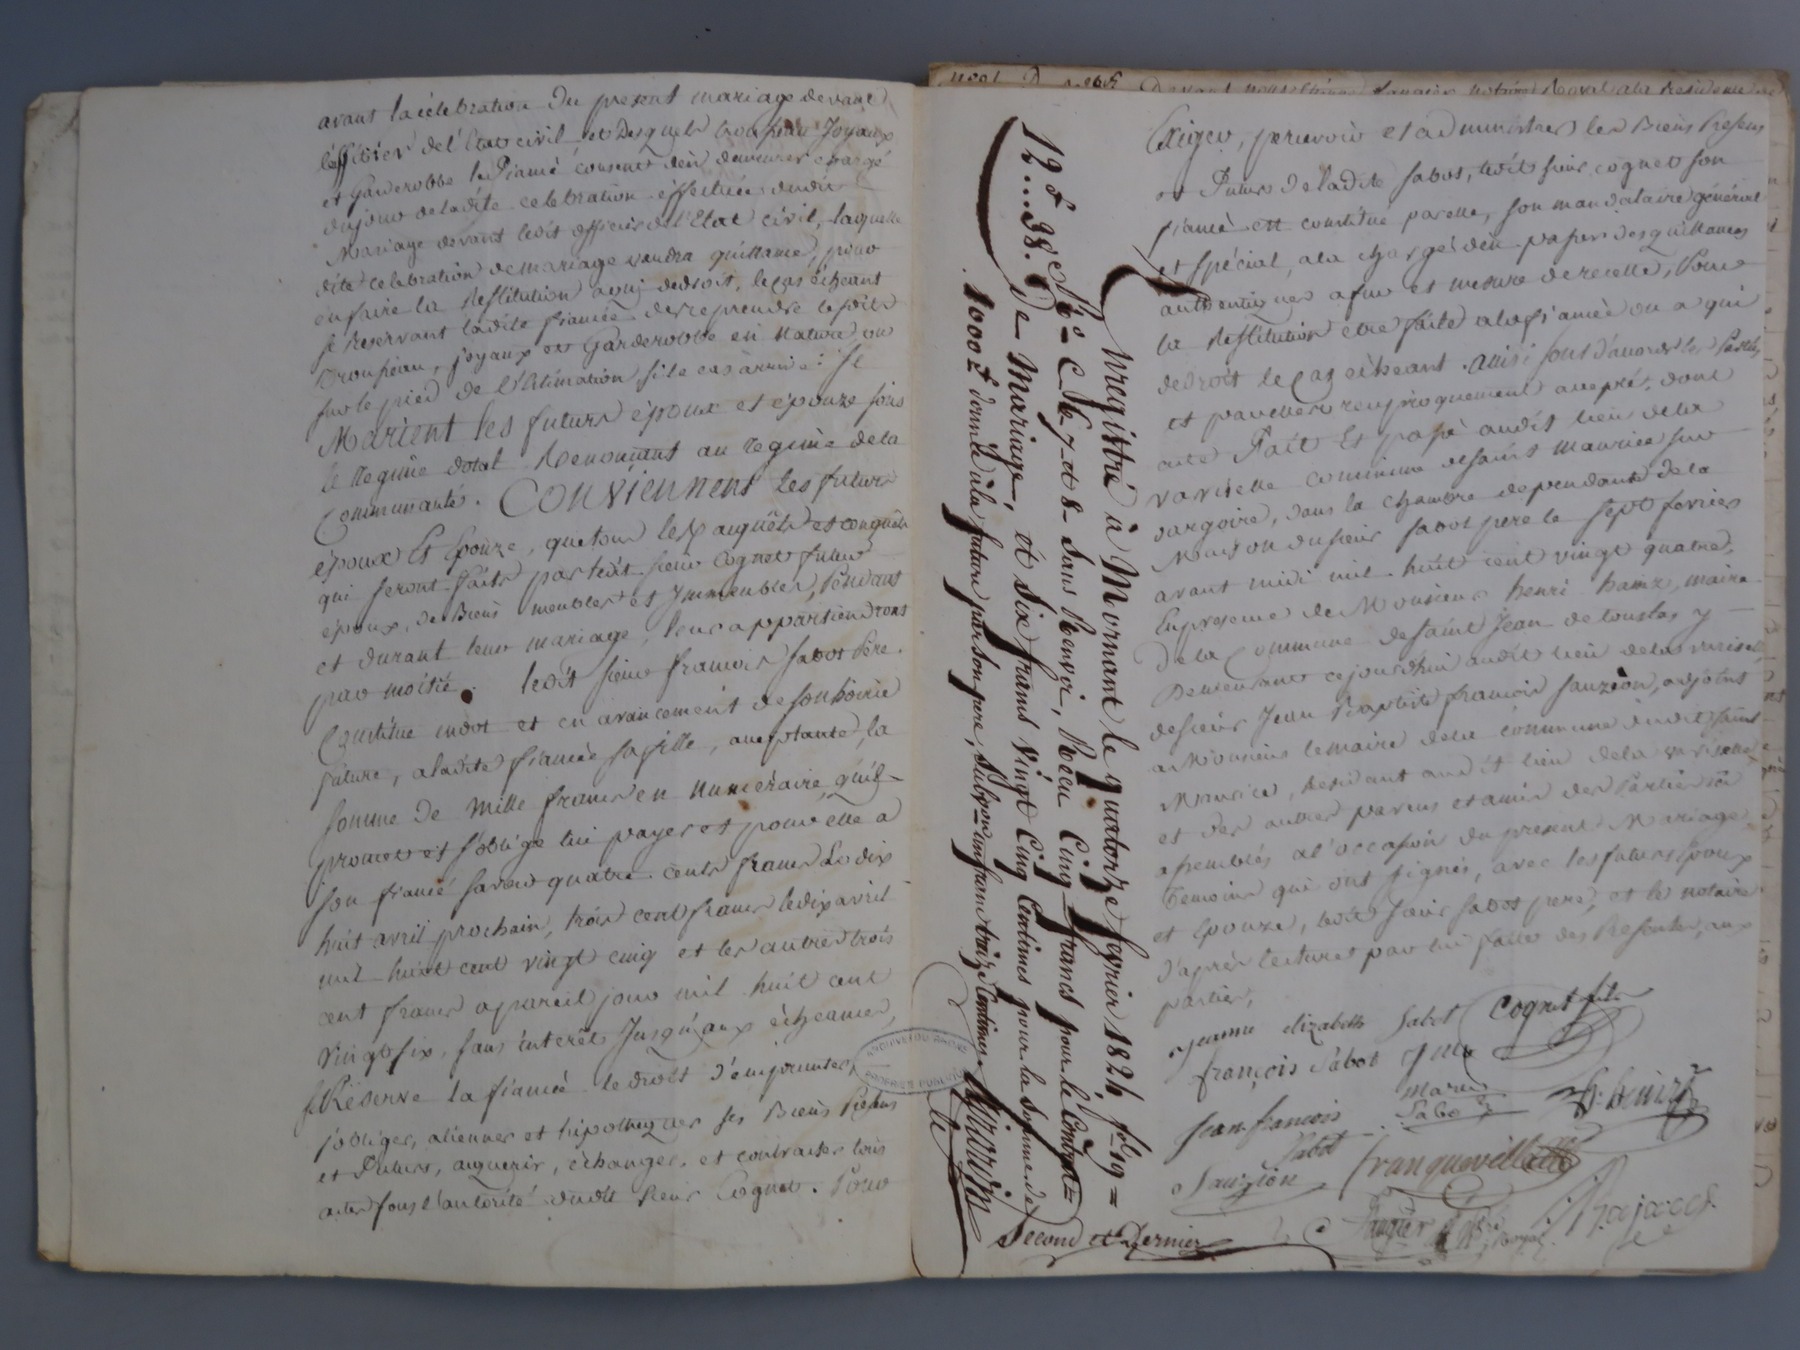 avant la célébration du présent mariage devant
l'éffitiér dél'Etat civil et desquels trousseau Joyaux
et Garderobbe le fiancé consent d'ên demeurer chargé
du jour de ladite celebration éffectuée dudit
Mariage devant ledit officier del'Etat civil, laquelle
dite celebration de mariage vaudra quittance, pour
en faire la Restitution aqui dedroit, le cas écheant
se reservant ladite fiancée de reprendre lesdits
trousseau, joyaux et Garderobbe en Nature ou
sur le pied de l'Estimation si le cas arrive : Se
Marient les futurs époux et épouze sous
le Regime dotal Renonçant au regime de la
Communauté. Conviennent les futurs
époux Et Epouze, que tous les acquêts et conquêts
qui seront faits par ledit sieur Cognet futur
époux, de Biens meubles et Immeubles, pendant
et durant leur mariage, leur appartiendront
par moitié. ledit sieur francois Sabot Pere
Constitue endot et en avancement de son hoirie
future, a ladite fiancée sa fille, acceptante, la
somme de mille francs en Numeraire, qu'il
promet et s'oblige lui payer et pour elle a
son fiancé savoir quatre cents francs Le dix
huit avril prochain, trois cent francs le dix avril
mil huit cent vingt cinq et les autres trois
cent francs a pareil jour mil huit cent
vingt six, sans interêt Jusqu'aux échéances,
se Réserve la fiancée le droit d'emprunter,
s'obliger, aliener et hipothequer ses Biens Présens
et Futurs, acquerir, échanger, et contracter tous
actes sous l'autorité dudit sieur Cognet. Pour
ARCHIVES DU RHONE
PROPRIÉTÉ PUBLIQUE
Exiger, percevoir et administrer les Biens Présens
et Futurs de ladite Sabot, ledit sieur Cognet son
fiancé est constitué par elle, son mandataire général
et spécial, a la charge d'en passer des quittances
authentiques a fur et mesure de recette, Pour
la Restitution être faite a la fiancée ou a qui
dedroit le cas écheant. Ainsi sont d'accord les Parties
et par elles reciproquement accepté, dont
acte Fait Et passé audit lieu de la
varizelle commune de saint Maurice sur
dargoire, dans la chambre dependante de la
Maison du sieur Sabot pere le sept fevrier
avant midi mil huit cent vingt quatre,
En presence de Monsieur henri hainz, maire
de la Commune de Saint Jean de touslas, y
demeurant ce jourdhui audit lieu de la varizelle,
de sieur Jean Baptiste francois Sauzion, adjoint
a Monsieur le maire de la commune dudit saint
Maurice, Residant audit lieu de la varizelle
et des autres parens et amis des Parties ici
assemblés a l'occasion du present Mariage
temoins qui ont signés, avec les futurs Epoux
et Epouze, ledit sieur Sabot pere, et le notaire
d'après lecture par lui faite des Présentes, aux
parties,
Jeanne elizabeth Sabot Cognet fils
françois Sabot
Marie
Sabot
jean françois
Sabot
Sauzion franquevill
Laugier Nre Royal
Second et Dernier
Enregistré à Mornant le quatorze fevrier 1824 fo 19
Ro C 6e 7 et 8 sans Renvoi, Reçu Cinq francs pour le Contrat
de Mariage, et Six francs Vingt Cinq Centimes pour la Somme de
1000 f donnée à la future par son pere, Subvon un franc treize Centimes
12 f 38 c